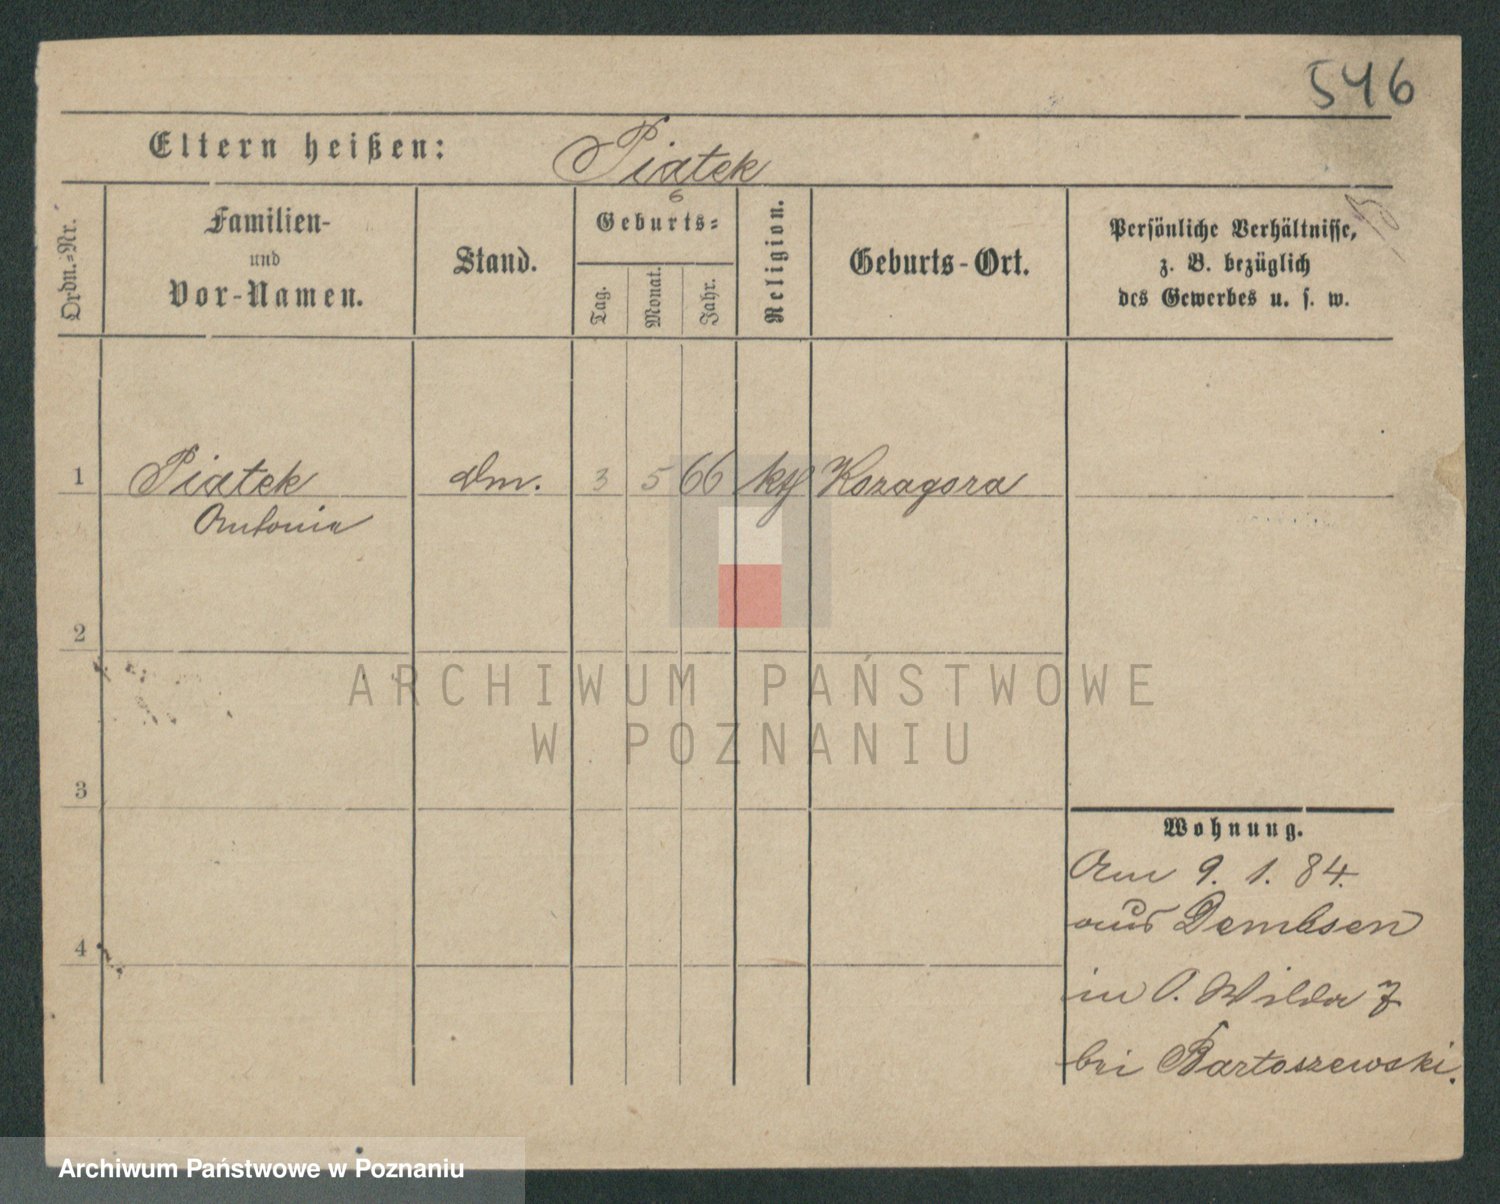 546
Eltern heißen: Piątek
6
Ordn.-Nr.
Familien-
und
Vor-Namen.
Stand.
Geburts-
Tag.
Monat.
Jahr.
Religion.
Geburts-Ort.
Persönliche Verhältnisse,
z. B. bezüglich
des Gewerbes u. s. w.
1 Piątek dm. 3 5 66 kth Kozagora
Antonie
2
3
4
Wohnung.
Am 9. 1. 84.
aus Dembsen
in O. Wilda 7
bei Bartoszewski.
ARCHIWUM PAŃSTWOWE
W POZNANIU
Archiwum Państwowe w Poznaniu